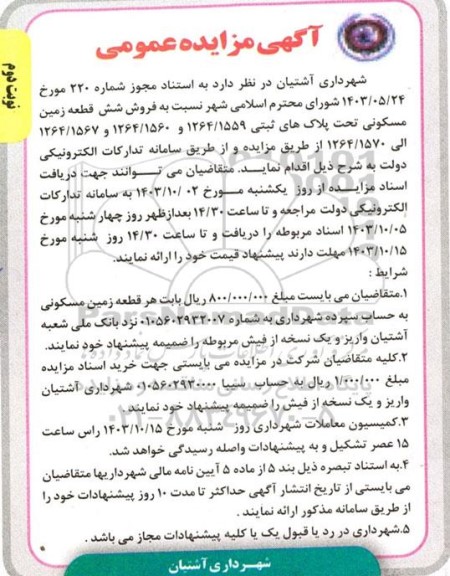 آگهی مزایده عمومی
نوبت دوم
شهرداری آشتیان در نظر دارد به استناد مجوز شماره ۲۲۰ مورخ
۱۴۰۳/۰۵/۲۴ شورای محترم اسلامی شهر نسبت به فروش شش قطعه زمین
مسکونی تحت پلاک های ثبتی ۱۲۶۴/۱۵۵۹ و ۱۲۶۴/۱۵۶۰ و ۱۲۶۴/۱۵۶۷
الی ۱۲۶۴/۱۵۷۰ از طریق مزایده و از طریق سامانه تدارکات الکترونیکی
دولت به شرح ذیل اقدام نمایـد. متقاضیان می تـــوانند جهت دریافت
اسناد مزایـــده از روز یکشنبه مـــورخ ۰۲ /۱۴۰۳/۱۰ به سامانه تدارکات
الکترونیکی دولت مراجعه و تا ساعت ۱۴/۳۰ بعدازظهر روز چهار شنبه مورخ
۱۴۰۳/۱۰/۰۵ اسناد مربوطه را دریافت و تا ساعت ۱۴/۳۰ روز شنبه مورخ
۱۴۰۳/۱۰/۱۵ مهلت دارند پیشنهاد قیمت خود را ارائه نمایند.
شرایط :
۱.متقاضیان می بایست مبلغ ۸۰۰/۰۰۰/۰۰۰ ریال بابت هر قطعه زمین مسکونی
به حساب سپرده شهرداری به شماره ۰۱۰۵۶۰۲۹۳۲۰۰۷ نزد بانک ملی شعبه
آشتیان واریز و یک نسخه از فیش مربوطه را ضمیمه پیشنهاد خود نمایند.
۲.کلیه متقاضیان شرکت در مزایده می بایستی جهت خرید اسناد مزایده
مبلغ ۱/۰۰۰/۰۰۰ ریال به حساب سیبا ۰۱۰۵۶۰۲۹۳۰۰۰۰ شهرداری آشتیان
واریز و یک نسخه از فیش را ضمیمه پیشنهاد خود نمایند.
۳.کمیسیون معاملات شهرداری روز شنبه مورخ ۱۴۰۳/۱۰/۱۵ راس ساعت
۱۵ عصر تشکیل و به پیشنهادات واصله رسیدگی خواهد شد.
۴.به استناد تبصره ذیل بند ۵ از ماده ۵ آیین نامه مالی شهرداریها متقاضیان
می بایستی از تاریخ انتشار آگهی حداکثر تا مدت ۱۰ روز پیشنهادات خود را
از طریق سامانه مذکور ارائه نمایند .
۵.شهرداری در رد یا قبول یک یا کلیه پیشنهادات مجاز می باشد .
شهرداری آشتیان